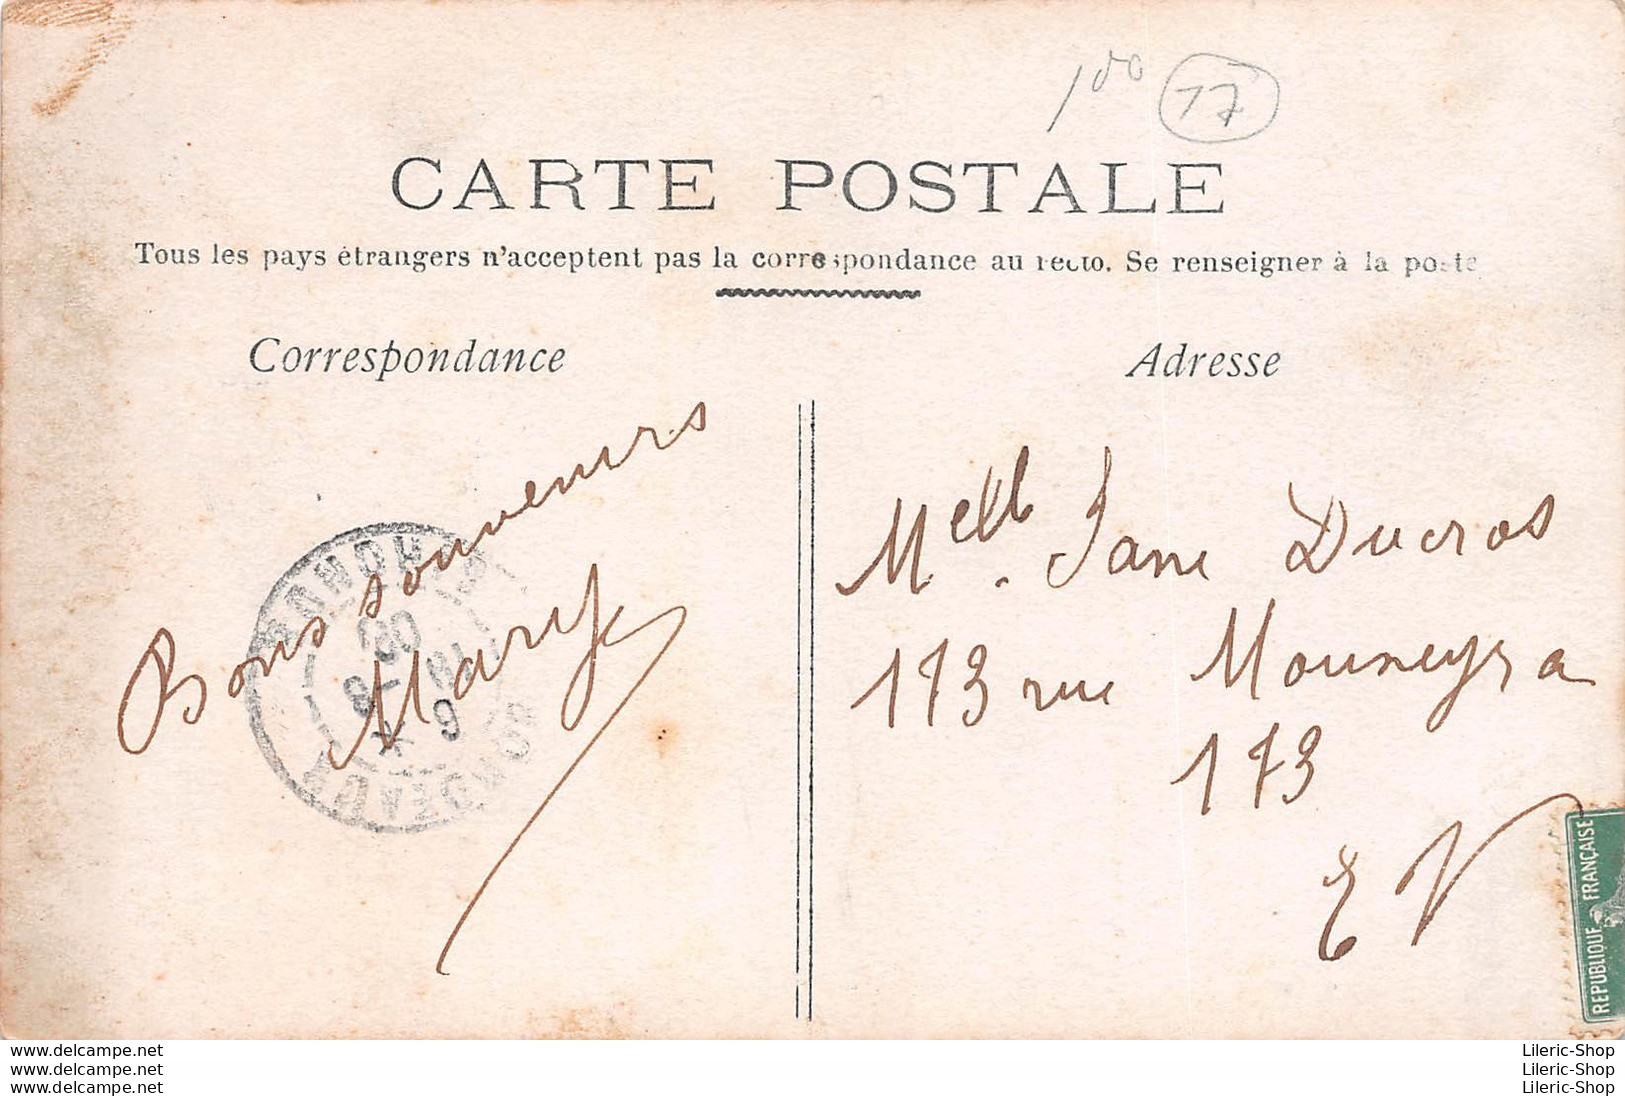 100 17
CARTE POSTALE
Tous les pays étrangers n'acceptent pas la correspondance au recto. Se renseigner à la poste
Correspondance
Adresse
Bons souvenirs
Mary
Melle. Jane Ducros
173 rue Mouneyra
173
E V
BORDEAUX
GIRONDE
REPUBLIQUE FRANÇAISE
www.delcampe.net
www.delcampe.net
www.delcampe.net
Lileric-Shop
Lileric-Shop
Lileric-Shop